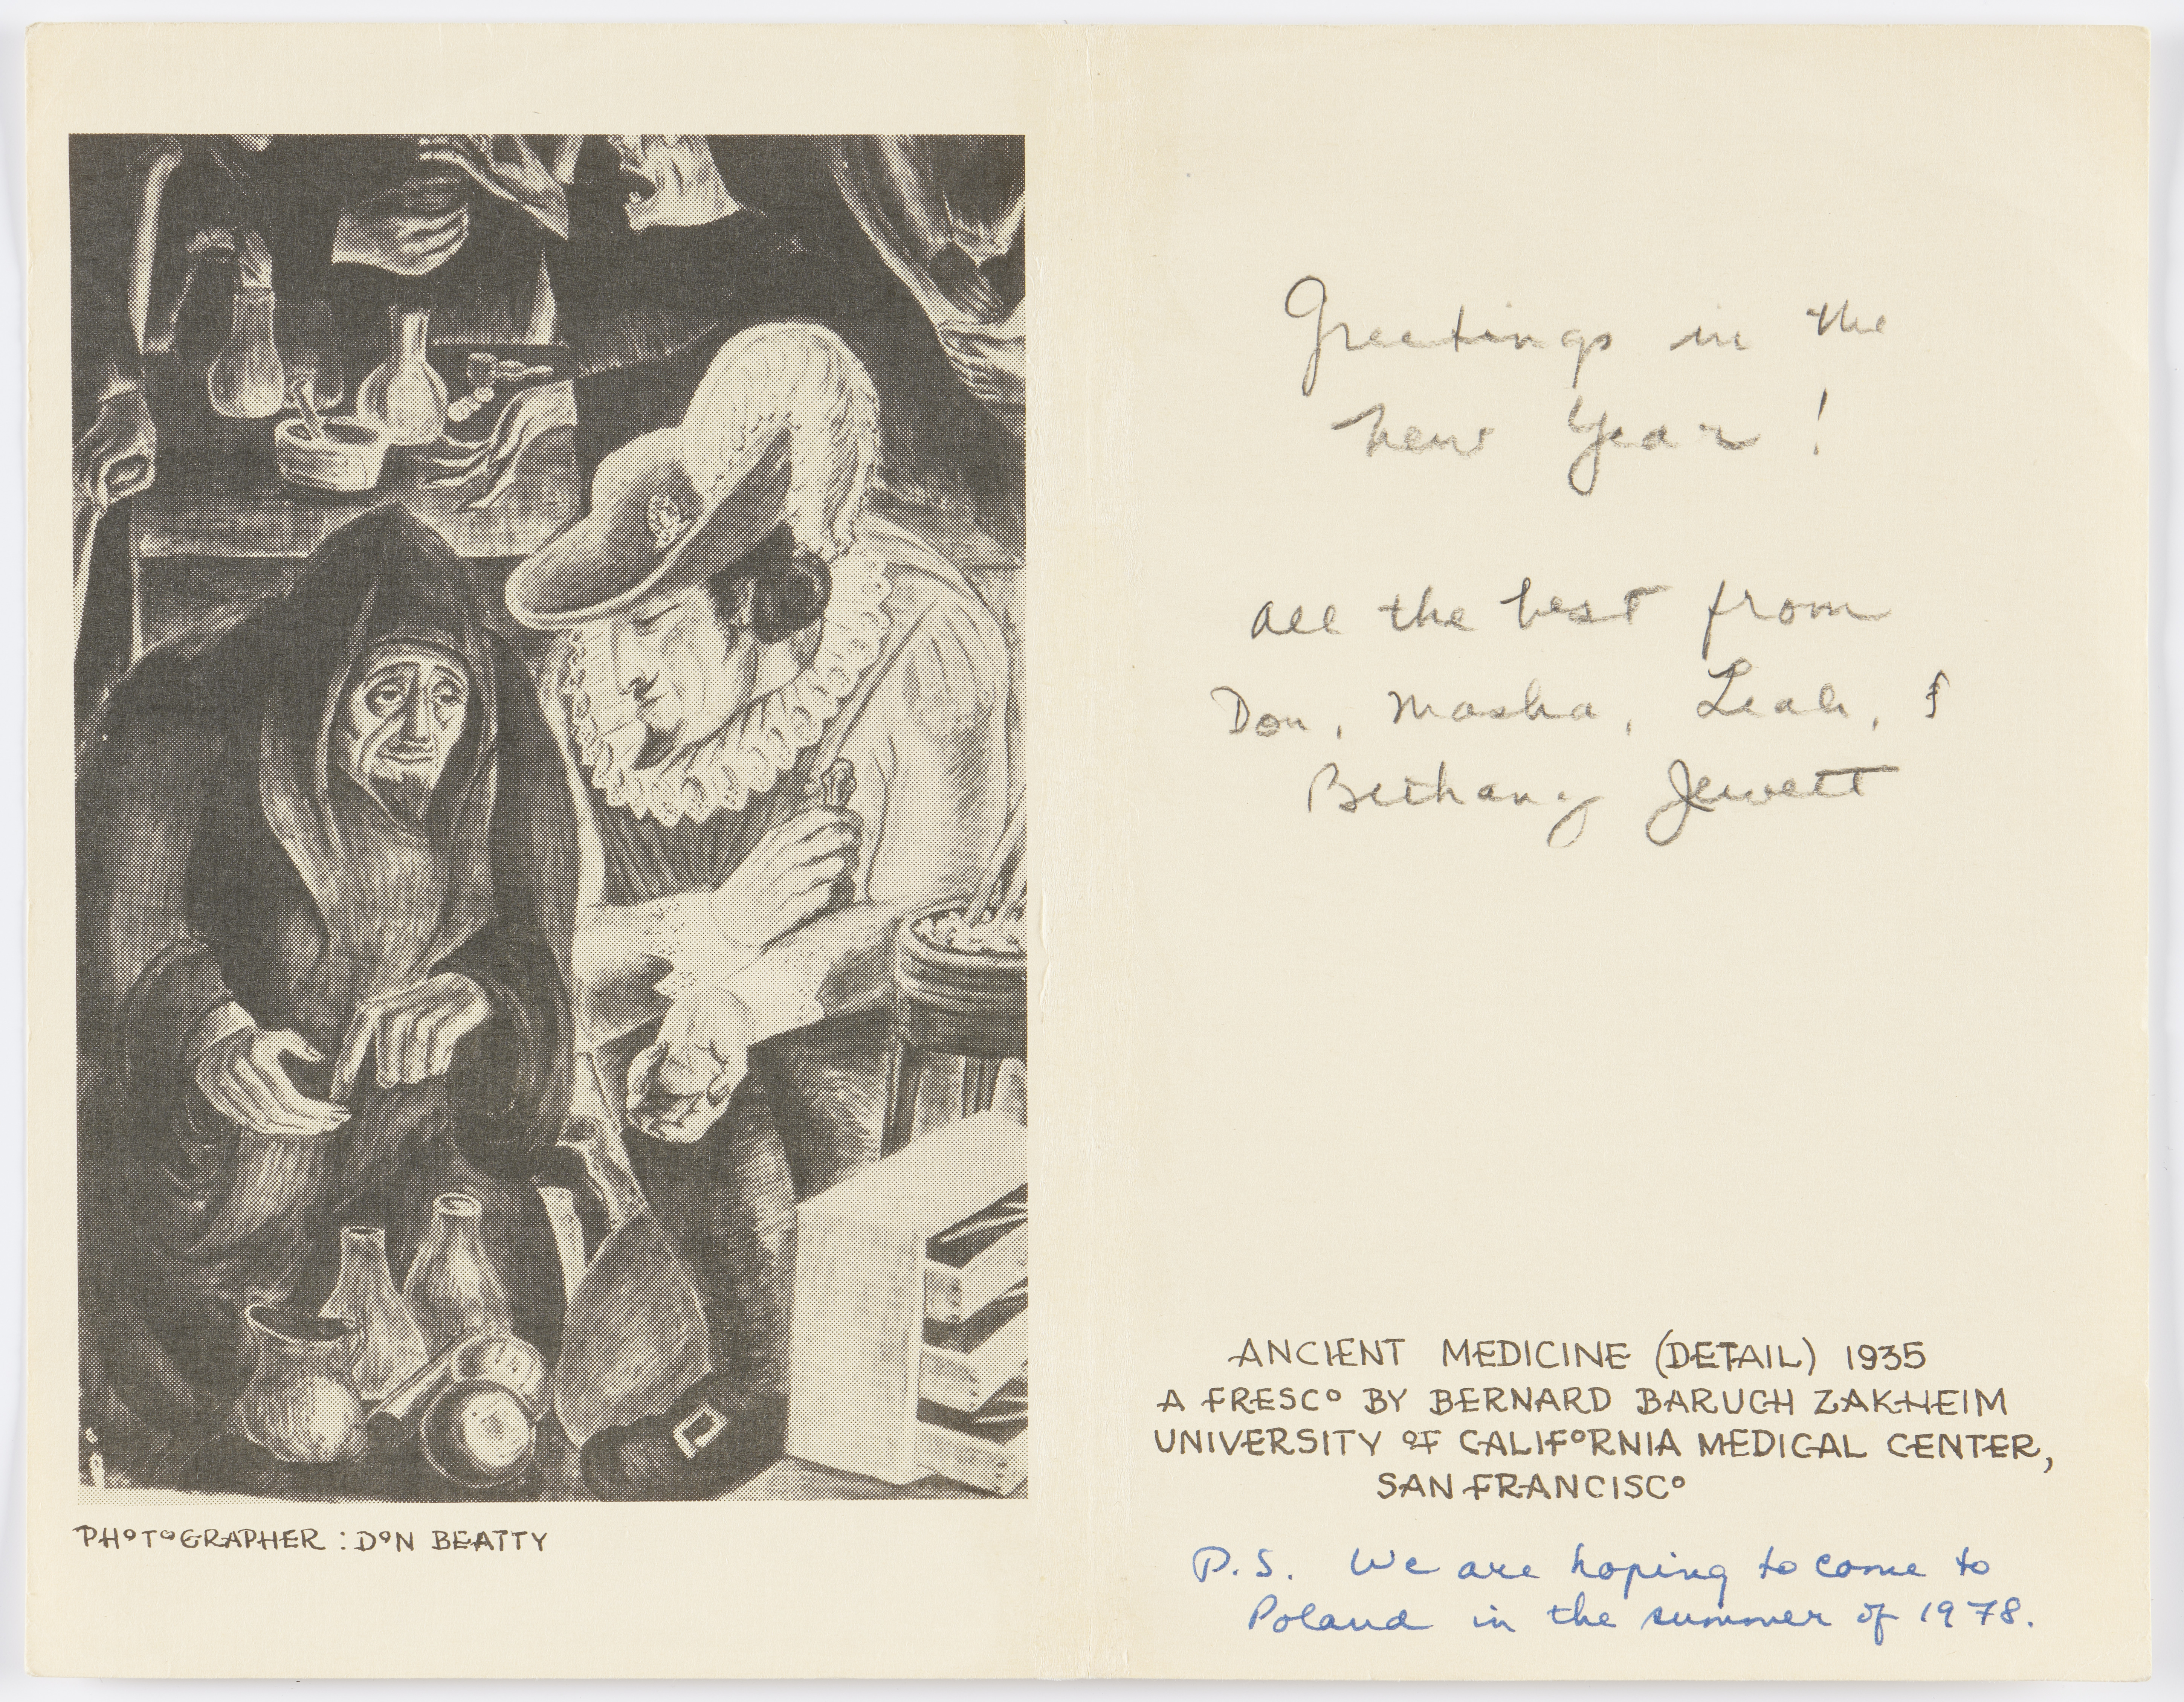 PHOTOGRAPHER : DON BEATTY
Greetings in the
New Year !
All the best from
Don, Masha, Leah, &
Bethany Jewett
ANCIENT MEDICINE (DETAIL) 1935
A FRESCO BY BERNARD BARUCH ZAKHEIM
UNIVERSITY OF CALIFORNIA MEDICAL CENTER,
SAN FRANCISCO
P.S. We are hoping to come to
Poland in the summer of 1978.